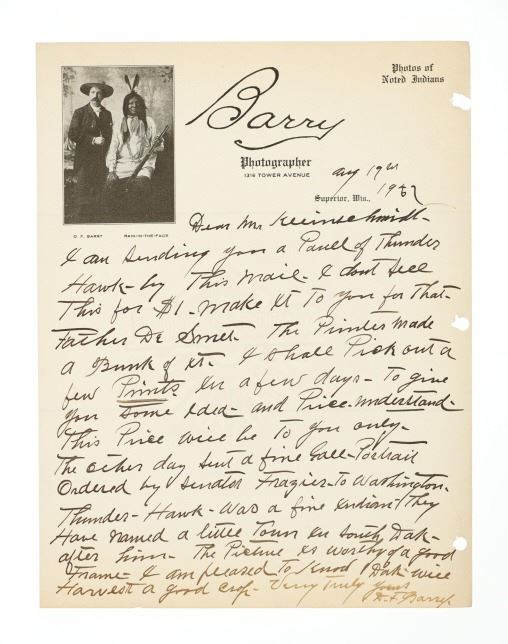 Photos of
Noted Indians
Barry
Photographer
1316 TOWER AVENUE
Superior, Wis.,
Aug 19
D. F. BARRY RAIN-IN-THE-FACE
Dear Mr Kleinschmidt-
I am sending you a Panel of Thunder
Hawk- by This Mail- I dont sell
This for $1- Make it To you for That-
Father De Smet- The Printer Made
a Bunk of it- I shall Pick out a
few Prints in a few days- To give
you some idea- and Price- understand-
This Price will be to you only-
The other day sent a fine Gall- Portrait
Ordered by Senator Frazier- To Washington-
Thunder- Hawk- was a fine Indian- They
Have named a little Town in South Dak-
after him- The Picture is worthy of a good
Frame- I am pleased To Know Dak- will
Harvest a good crop- Very Truly yours
D. F. Barry